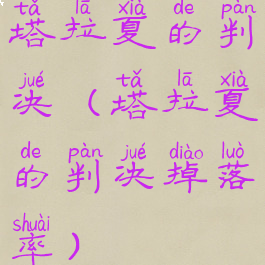 tǎ lā xià de pàn
塔拉夏的判
jué tǎ lā xià
决（塔拉夏
de pàn jué diào luò
的判决掉落
shuài
率）